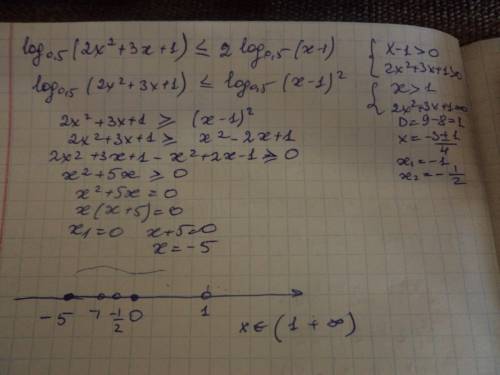 log₀,₅(2x²+3x+1) ≤ 2 log₀,₅(x-1)
log₀,₅(2x²+3x+1) ≤ log₀,₅(x-1)²
2x²+3x+1 ≥ (x-1)²
2x²+3x+1 ≥ x²-2x+1
2x²+3x+1-x²+2x-1 ≥ 0
x²+5x ≥ 0
x²+5x=0
x(x+5)=0
x₁=0 x+5=0
x=-5
{ x-1>0
2x²+3x+1>0
{ x>1
2x²+3x+1=0
D=9-8=1
x=(-3±1)/4
x₁=-1
x₂=-1/2
-5 -1 -1/2 0 1
x∈(1 +∞)